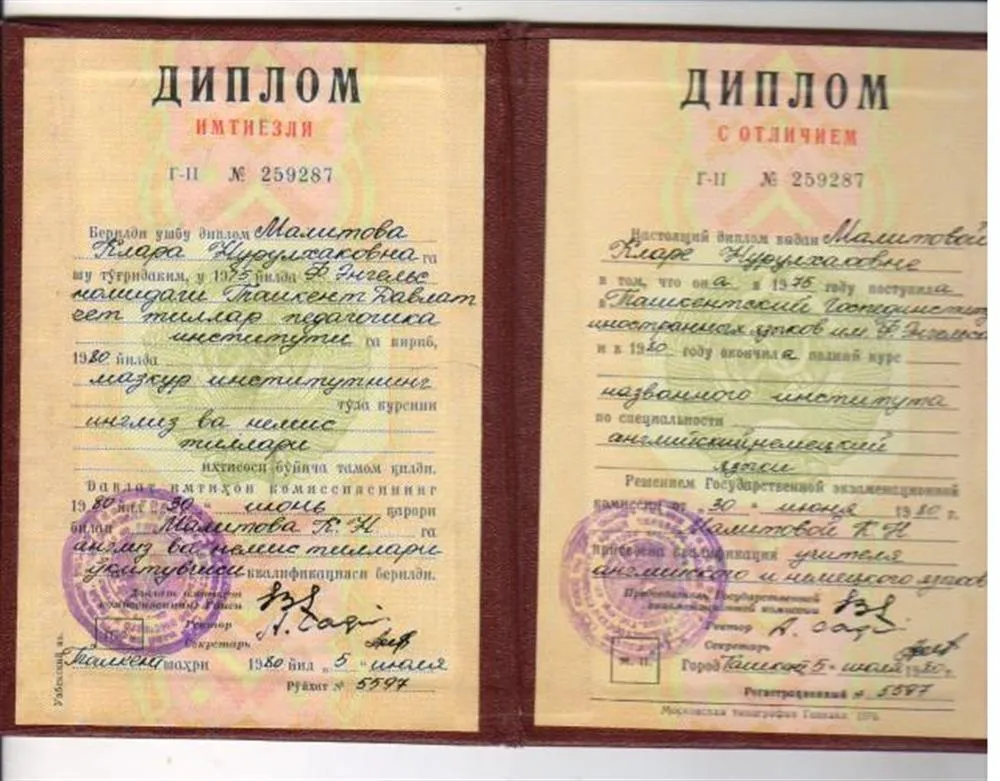 ДИПЛОМ
ИМТИЕЗЛИ
Г-II № 259287
Берилди ушбу диплом Малитова
Клара Нурулхаковна га
шу тўғридаким, у 1975 йилда Ф Энгельс
номидаги Ташкент Давлат
чет тиллар педагогика
институти га кириб,
1980 йилда
мазкур институтнинг
тўла курсини
инглиз ва немис
тиллари
ихтисоси бўйича тамом қилди.
Давлат имтиҳон комиссиясининг
1980 йил 30 июнь қарори
билан Малитова К. Н га
инглиз ва немис тиллари
ўқитувчиси квалификацияси берилди.
Давлат имтиҳон
комиссиясининг Раиси
Ректор
Секретарь
Ташкент шаҳри 1980 йил „5" июля
Рўйхат № 5597
Узбекский яз.
ДИПЛОМ
С ОТЛИЧИЕМ
Г-II № 259287
Настоящий диплом выдан Малитовой
Кларе Нурулхаковне
в том, что она в 1975 году поступила
в Ташкентский Госпединститут
иностранных языков им. Ф. Энгельса
и в 1980 году окончила полный курс
названного института
по специальности
английский и немецкий
языки
Решением Государственной экзаменационной
комиссии от „30" июня 1980 г.
Малитовой К Н
присвоена квалификация учителя
английского и немецкого языков
Председатель Государственной
экзаменационной комиссии
Ректор
Секретарь
М. П.
Город Ташкент 5 июля 1980 г.
Регистрационный № 5597
Московская типография Гознака. 1976.